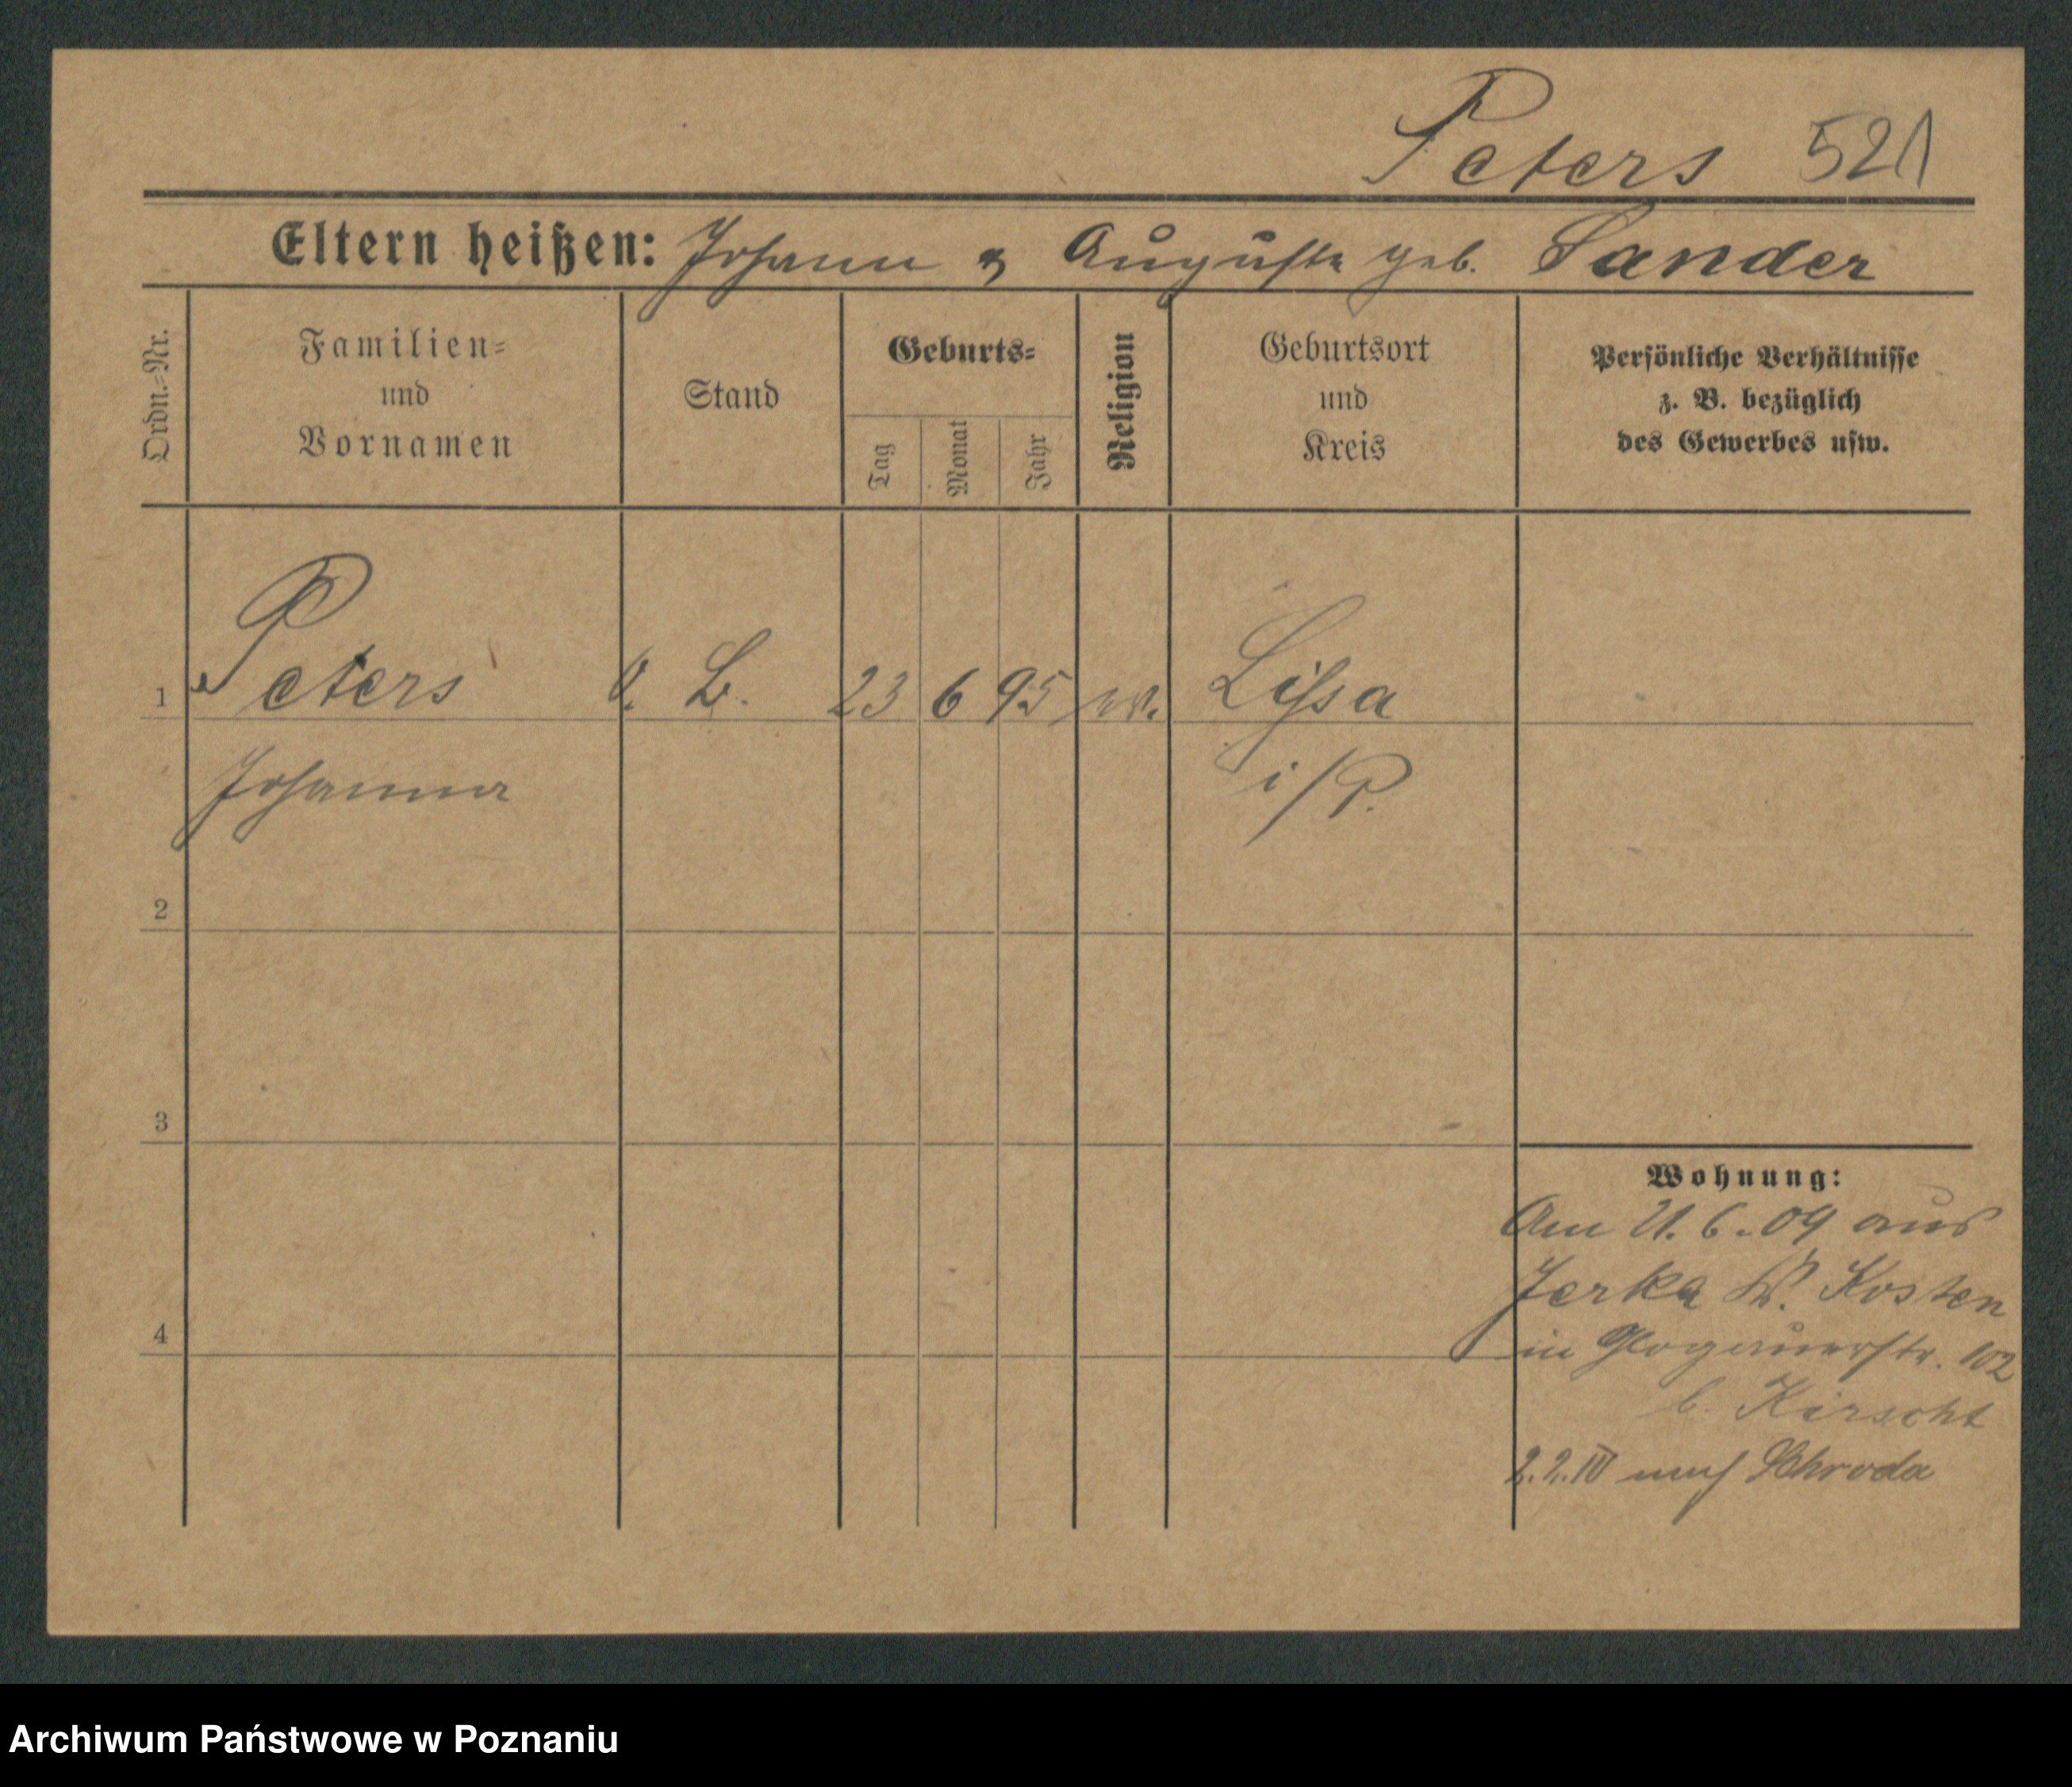 Peters 521
Eltern heißen: Johann & Auguste geb. Sander
Ordn.-Nr.
Familien-
und
Vornamen
Stand
Geburts-
Tag
Monat
Jahr
Religion
Geburtsort
und
Kreis
Persönliche Verhältnisse
z. B. bezüglich
des Gewerbes usw.
1 Peters o. B. 23 6 95 ev. Lissa
Johanna i/P.
2
3
4
Wohnung:
Am 21. 6. 09 aus
Jerka Kosten
in Glogauerstr. 102
b. Kirscht
2.2.10 nach Schroda
Archiwum Państwowe w Poznaniu